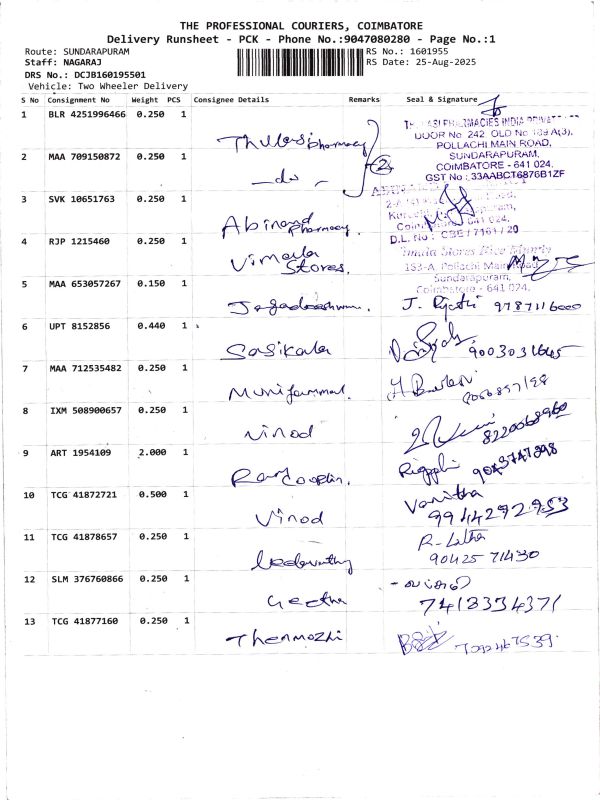 THE PROFESSIONAL COURIERS, COIMBATORE
Delivery Runsheet - PCK - Phone No.:9047080280 - Page No.:1
Route: SUNDARAPURAM
RS No.: 1601955
Staff: NAGARAJ
RS Date: 25-Aug-2025
DRS No.: DCJB160195501
Vehicle: Two Wheeler Delivery
S No Consignment No Weight PCS Consignee Details Remarks Seal & Signature
1 BLR 4251996466 0.250 1 Thulasi pharmacy
THULASI PHARMACIES INDIA PRIVATE
DOOR No 242 OLD No 189 A(3),
POLLACHI MAIN ROAD,
SUNDARAPURAM,
COIMBATORE - 641 024.
GST No : 33AABCT6876B1ZF
2 MAA 709150872 0.250 1 - do -
2
3 SVK 10651763 0.250 1 Abinand Pharmacy.
D.L. No : CBE / 7161 / 20
4 RJP 1215460 0.250 1 Vimala Stores.
183-A, Pollachi Main Road,
Sundarapuram,
Coimbatore - 641 024.
5 MAA 653057267 0.150 1 J. 9787116000
6 UPT 8152856 0.440 1 Sasikala
7 MAA 712535482 0.250 1 Muniyammal.
8 IXM 508900657 0.250 1 Vinod 8220068960
9 ART 1954109 2.000 1
10 TCG 41872721 0.500 1 Vinod Vanitha
9944292953
11 TCG 41878657 0.250 1 R. Latha
90425 71430
12 SLM 376760866 0.250 1 Geetha
7418334371
13 TCG 41877160 0.250 1 Thenmozhi